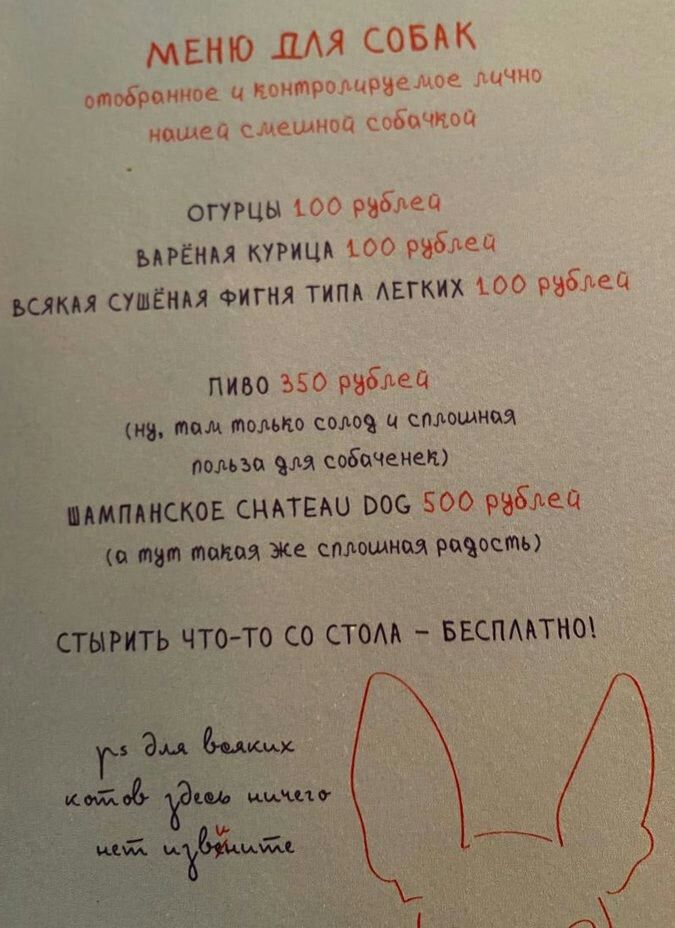 МЕНЮ ДЛЯ СОБАК
отобранное и контролируемое лично
нашей смешной собачкой
ОГУРЦЫ 100 рублей
ВАРЁНАЯ КУРИЦА 100 рублей
ВСЯКАЯ СУШЁНАЯ ФИГНЯ ТИПА ЛЕГКИХ 100 рублей
ПИВО 350 рублей
(ну, там только солод и сплошная
польза для собаченек)
ШАМПАНСКОЕ CHATEAU DOG 500 рублей
(а тут такая же сплошная радость)
СТЫРИТЬ ЧТО-ТО СО СТОЛА – БЕСПЛАТНО!
ps для всяких
котов здесь ничего
нет извините